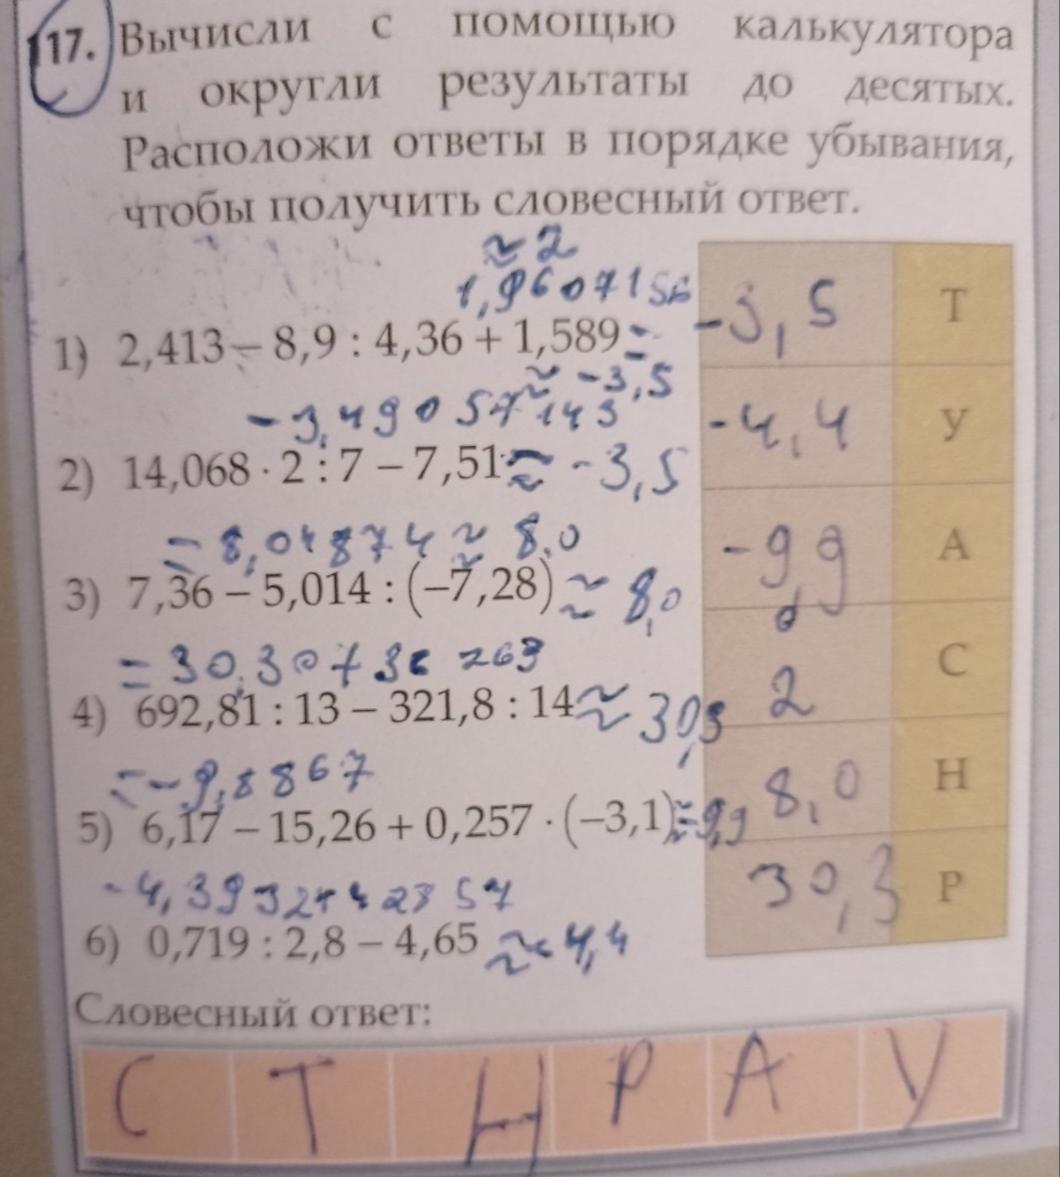 117. Вычисли с помощью калькулятора
и округли результаты до десятых.
Расположи ответы в порядке убывания,
чтобы получить словесный ответ.
≈ 2
1,9607156
1) 2,413 – 8,9 : 4,36 + 1,589 =
≈ -3,5
-3,49057143
2) 14,068 · 2 : 7 – 7,51 ≈ -3,5
= 8,04874 ≈ 8,0
3) 7,36 – 5,014 : (–7,28) ≈ 8,0
= 30,30736263
4) 692,81 : 13 – 321,8 : 14 ≈ 30,3
= -9,8867
5) 6,17 – 15,26 + 0,257 · (–3,1) ≈ 9,9
6) 0,719 : 2,8 – 4,65 ≈ -4,4
-3,5 Т
-4,4 У
-9,9 А
2 С
8,0 Н
30,3 Р
Словесный ответ:
С Т Н Р А У